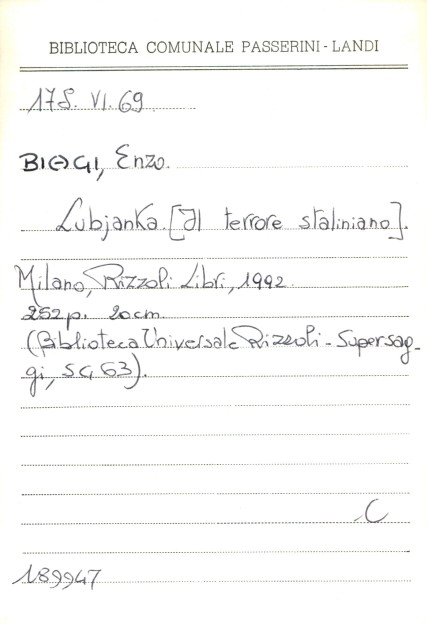 BIBLIOTECA COMUNALE PASSERINI-LANDI
17S. VI. 69
BIAGI, Enzo.
Lubjanka. [Il terrore staliniano].
Milano, Rizzoli Libri, 1992.
252 p. 20 cm.
(Biblioteca Universale Rizzoli - Supersag-
gi, SG 63).
C
189947